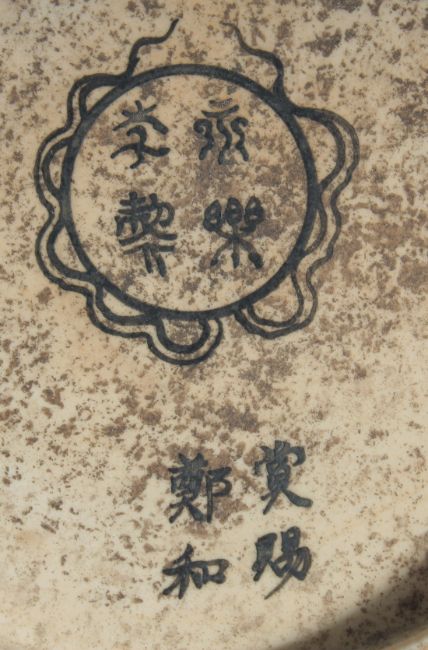 永樂
年製
賞賜
鄭和